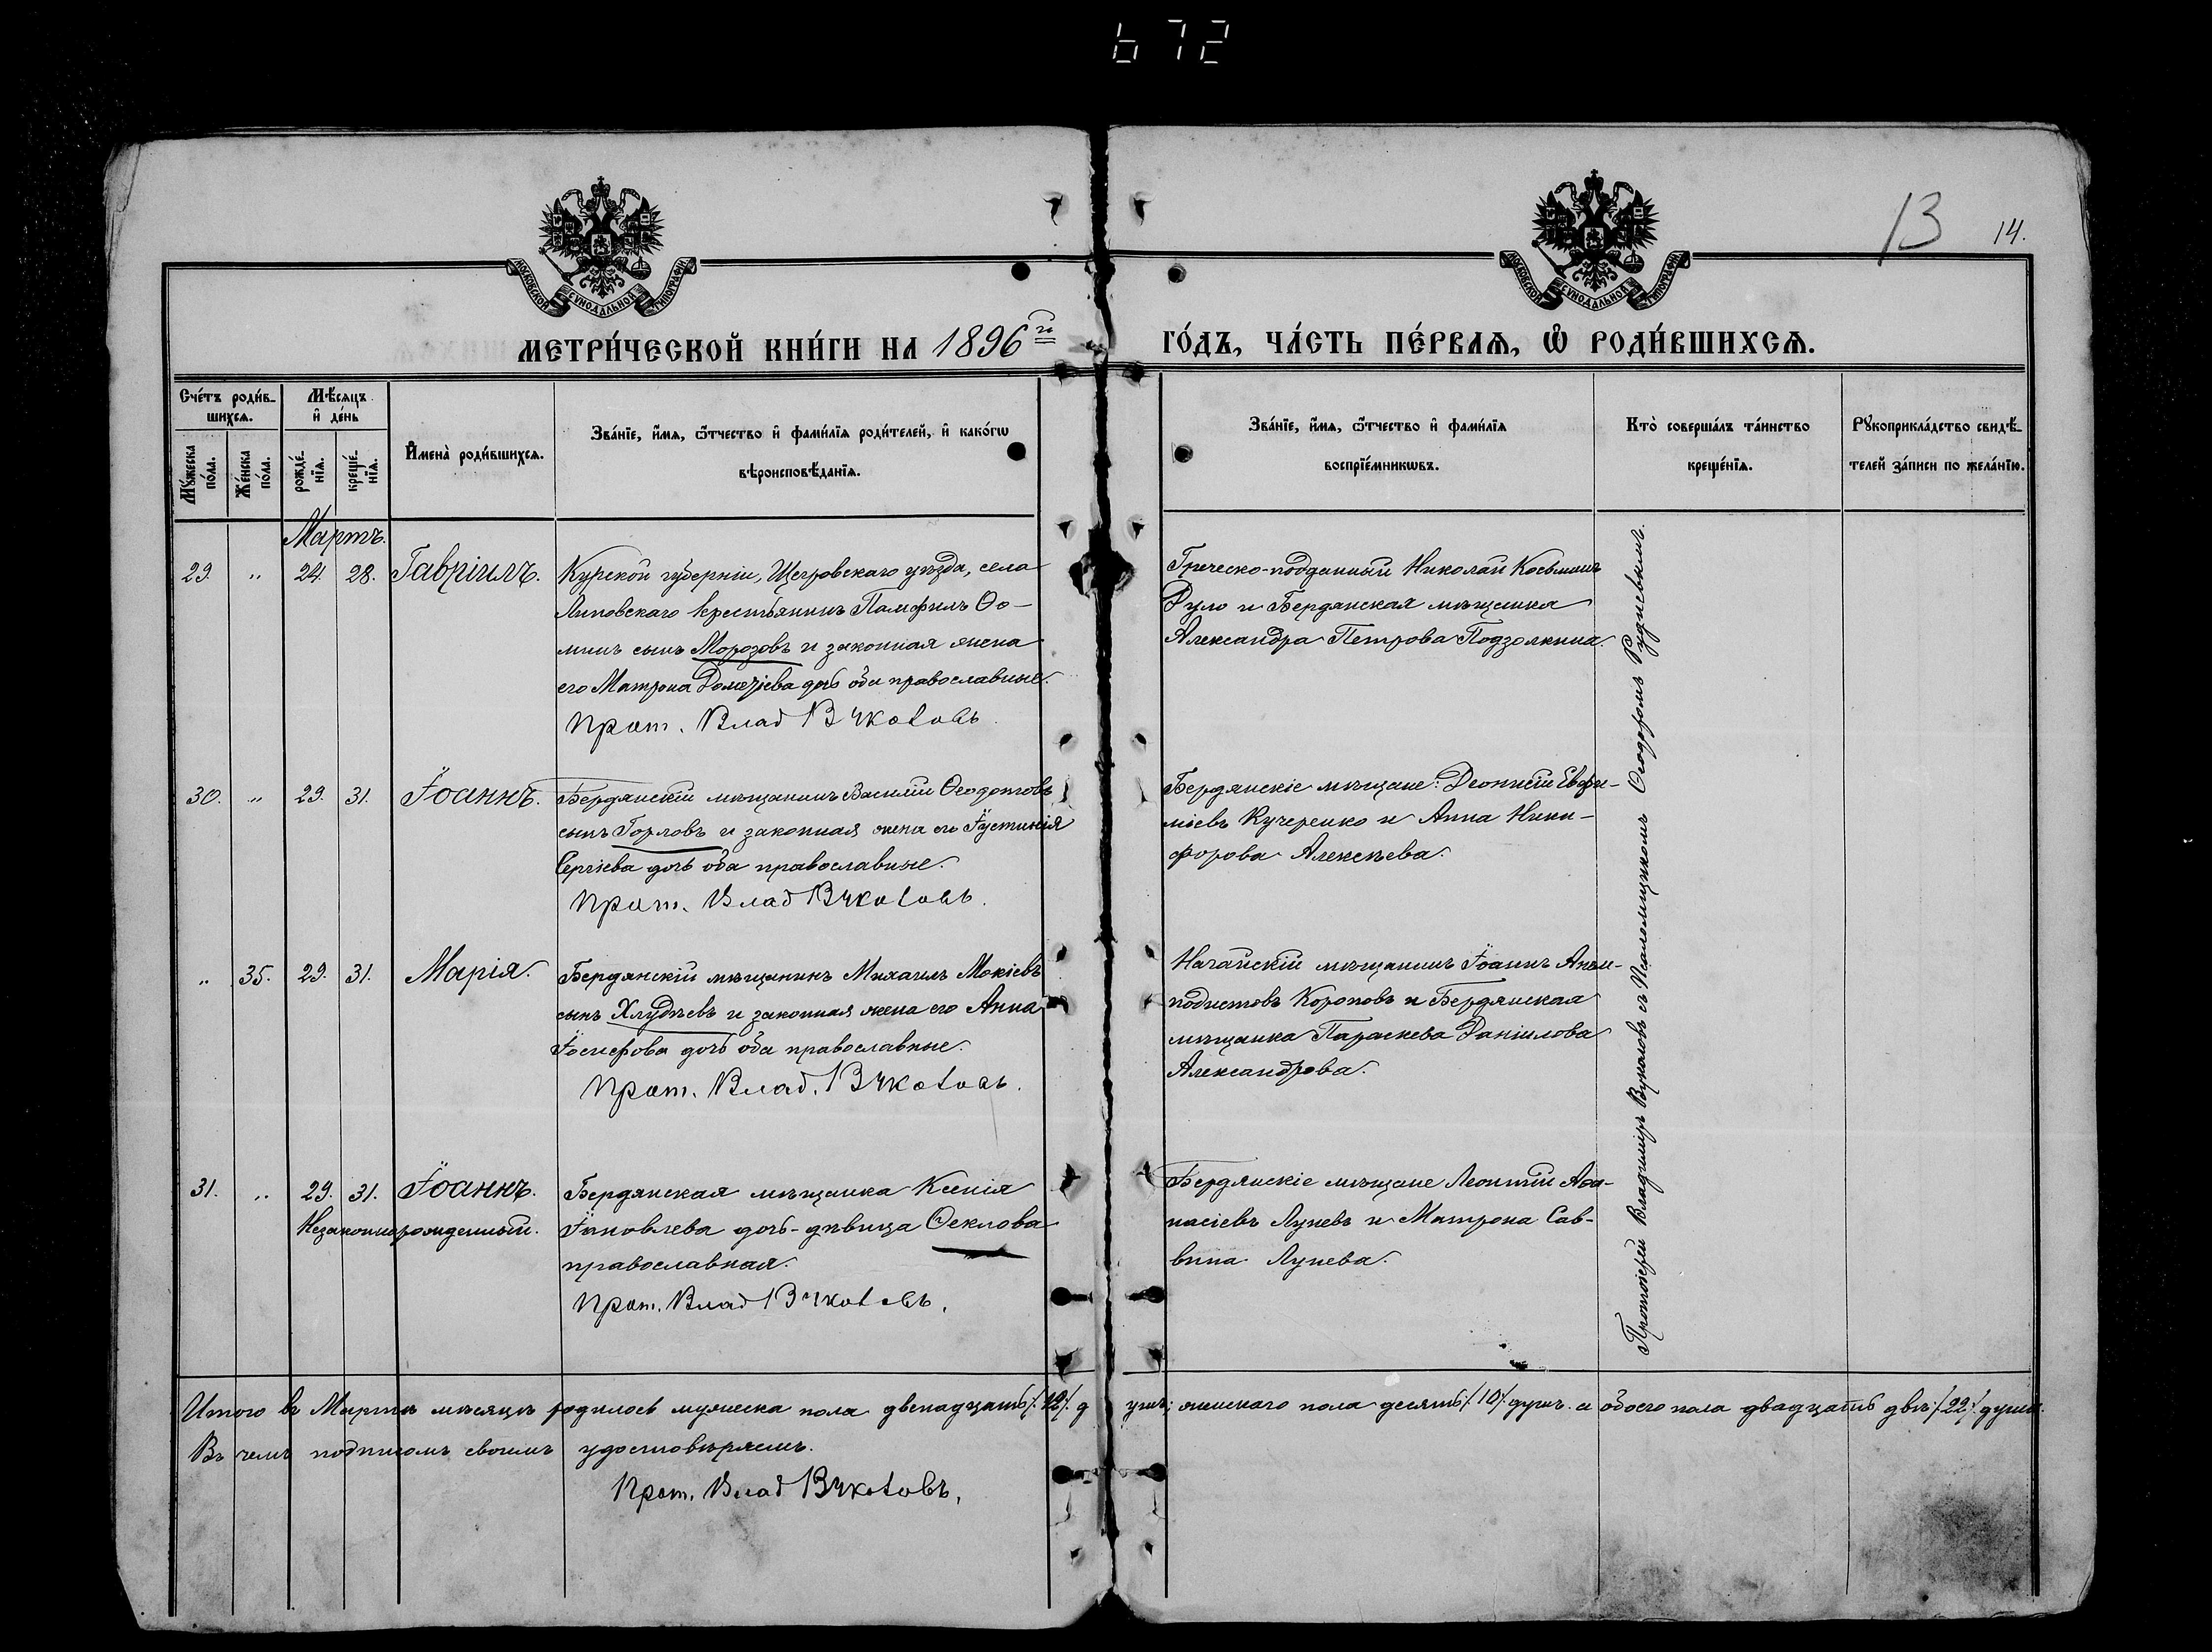 672
13 14.
МОСКОВСКОЙ СУНОДАЛЬНОЙ ТИПОГРАФІИ
МОСКОВСКОЙ СУНОДАЛЬНОЙ ТИПОГРАФІИ
МЕТРИ́ЧЕСКОЙ КНИ́ГИ НА 1896й ГО́ДЪ, ЧА́СТЬ ПЕ́РВАѦ, Ѡ҆ РОДИ́ВШИХСѦ.
Сче́тъ роди́в-
шихсѧ.
Мꙋ́жеска по́ла.
Же́нска по́ла.
Мѣ́сѧцъ
и҆ де́нь
рожде́-нїѧ.
креще́-нїѧ.
И҆мена̀ роди́вшихсѧ.
Зва́нїе, и҆́мѧ, ѻ҆́тчество и҆ фами́лїѧ роди́телей, и҆ како́гѡ
вѣроисповѣ́данїѧ.
Зва́нїе, и҆́мѧ, ѻ҆́тчество и҆ фами́лїѧ
воспрїе́мникѡвъ.
Кто̀ соверша́лъ та́инство
креще́нїѧ.
Рꙋкоприкла́дство свидѣ́-
телей за́писи по жела́нїю.
Мартъ.
29. " 24. 28. Гавріилъ.
Курской губерніи, Щигровскаго уѣзда, села
Липовскаго крестьянинъ Памфилъ Ѳо-
минъ сынъ Морозовъ и законная жена
его Матрона Дометіева дочь оба православные.
Прот. Влад Вукотовъ.
Греческо-подданный Николай Косьминъ
Руло и Бердянская мѣщанка
Александра Петрова Подзолкина.
30. " 29. 31. Іоаннъ.
Бердянскій мѣщанинъ Василій Ѳеодотовъ
сынъ Горловъ и законная жена его Іустинія
Сергіева дочь оба православные.
Прот. Влад Вукотовъ.
Бердянскіе мѣщане: Діонисій Евфи-
міевъ Кучеренко и Анна Ники-
форова Алексѣева.
" 35. 29. 31. Марія.
Бердянскій мѣщанинъ Михаилъ Мокіевъ
сынъ Хлудѣевъ и законная жена его Анна
Іосифова дочь оба православные.
Прот. Влад. Вукотовъ.
Ногайскій мѣщанинъ Іоаннъ Анем-
подистовъ Короповъ и Бердянская
мѣщанка Параскева Даніилова
Александрова.
31. " 29. 31. Іоаннъ.
Незаконнорожденный.
Бердянская мѣщанка Ксенія
Іаковлева дочь-дѣвица Ѳеклова
православная.
Прот. Влад Вукотовъ.
Бердянскіе мѣщане Леонтій Аѳа-
насіевъ Луневъ и Матрона Сав-
вина Лунева.
Протоіерей Владиміръ Вукотовъ съ Псаломщикомъ Ѳеодоромъ Рудневымъ.
Итого въ Мартѣ мѣсяцѣ родилось мужеска пола двенадцать /12/ душъ, женскаго пола десять /10/ душъ. а обоего пола двадцать двѣ /22/ души.
Въ чемъ подписомъ своимъ удостовѣряемъ.
Прот. Влад Вукотовъ.